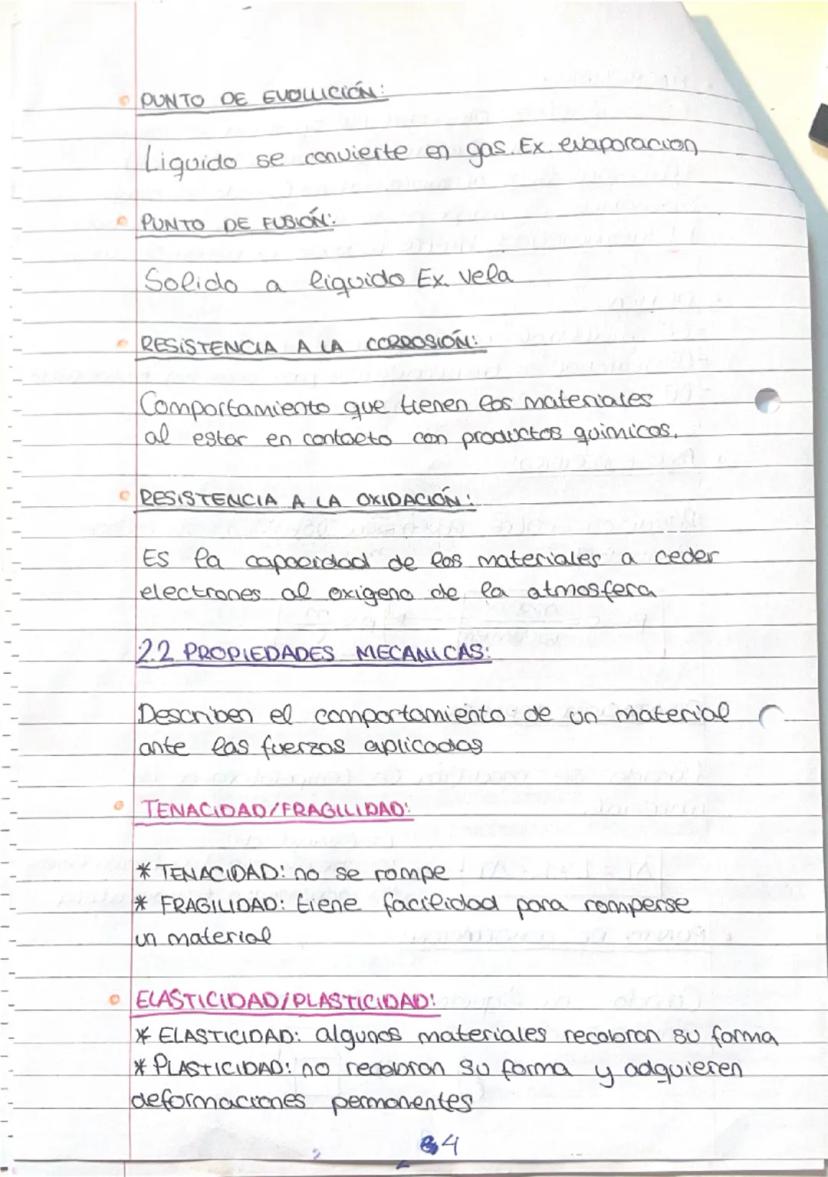 PUNTO DE EVOLUCIÓN:
Liquido se convierte en gas. Ex. evaporacion
PUNTO DE FUSIÓN:
Solido a liquido Ex. vela
RESISTENCIA A LA CORROSIÓN:
Comportamiento que tienen los materiales
al estar en contacto con productos quimicos.
RESISTENCIA A LA OXIDACIÓN:
Es la capacidad de los materiales a ceder
electrones al oxigeno de la atmosfera
2.2 PROPIEDADES MECANICAS:
Describen el comportamiento de un material
ante las fuerzas aplicadas
TENACIDAD/FRAGILIDAD:
* TENACIDAD: no se rompe
* FRAGILIDAD: tiene facilidad para romperse
un material
ELASTICIDAD/PLASTICIDAD:
* ELASTICIDAD: algunos materiales recobran su forma
* PLASTICIDAD: no recobran su forma y adquieren
deformaciones permanentes
4